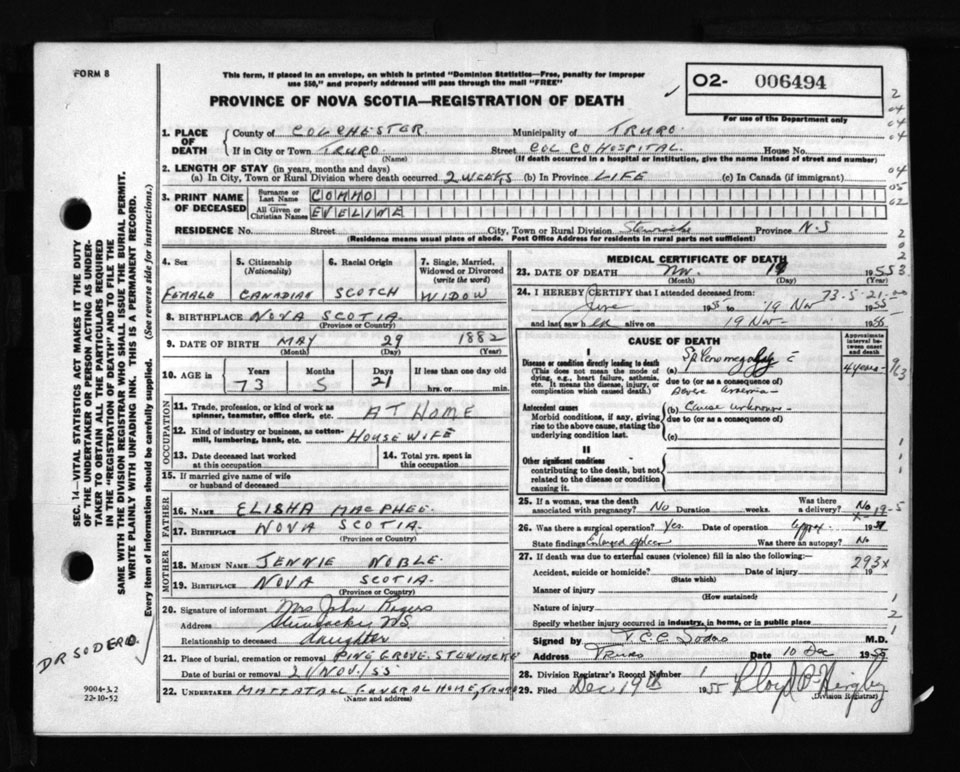 FORM 8
This form, if placed in an envelope, on which is printed "Dominion Statistics—Free, penalty for improper
use $50," and properly addressed will pass through the mail "FREE"
O2- 006494
For use of the Department only
PROVINCE OF NOVA SCOTIA—REGISTRATION OF DEATH
1. PLACE OF DEATH
County of COLCHESTER. Municipality of TRURO.
If in City or Town TRURO. (Name) Street COL CO HOSPITAL. House No.
(If death occurred in a hospital or institution, give the name instead of street and number)
2. LENGTH OF STAY (in years, months and days)
(a) In City, Town or Rural Division where death occurred 2 WEEKS (b) In Province LIFE (c) In Canada (if immigrant)
3. PRINT NAME OF DECEASED
Surname or Last Name COMMO
All Given or Christian Names EVELINE
RESIDENCE No. Street City, Town or Rural Division Province N.S
(Residence means usual place of abode. Post Office Address for residents in rural parts not sufficient)
4. Sex
FEMALE
5. Citizenship (Nationality)
CANADIAN
6. Racial Origin
SCOTCH
7. Single, Married, Widowed or Divorced (write the word)
WIDOW
8. BIRTHPLACE NOVA SCOTIA.
(Province or Country)
9. DATE OF BIRTH MAY 29 1882
(Month) (Day) (Year)
10. AGE in Years Months Days If less than one day old
73 5 21 hrs. or min.
OCCUPATION
11. Trade, profession, or kind of work as
spinner, teamster, office clerk, etc. AT HOME
12. Kind of industry or business, as cotton-
mill, lumbering, bank, etc. HOUSE WIFE
13. Date deceased last worked at this occupation
14. Total yrs. spent in this occupation
15. If married give name of wife
or husband of deceased
FATHER
16. NAME ELISHA MACPHEE.
17. BIRTHPLACE NOVA SCOTIA.
(Province or Country)
MOTHER
18. MAIDEN NAME JENNIE NOBLE.
19. BIRTHPLACE NOVA SCOTIA.
(Province or Country)
20. Signature of informant Mrs John Rogers
Address Stewiacke NS.
Relationship to deceased daughter
21. Place of burial, cremation or removal PINE GROVE. STEWIACKE
Date of burial or removal 21 NOV. / 55
22. UNDERTAKER MATTATALL FUNERAL HOME, TRURO
(Name and address)
MEDICAL CERTIFICATE OF DEATH
23. DATE OF DEATH Nov. 19 1955
(Month) (Day) (Year)
73-5-21
24. I HEREBY CERTIFY that I attended deceased from:
June 19 to 19 Nov 1955
and last saw her alive on 19 Nov- 1955
CAUSE OF DEATH
Approximate interval between onset and death
I
Disease or condition directly leading to death
(This does not mean the mode of
dying, e.g., heart failure, asthenia,
etc. It means the disease, injury, or
complication which caused death)
(a) Splenomegaly 4 years-
due to (or as a consequence of)
Severe anaemia-
Antecedent causes
Morbid conditions, if any, giving
rise to the above cause, stating the
underlying condition last.
(b) Cause unknown-
due to (or as a consequence of)
(c)
II
Other significant conditions
contributing to the death, but not
related to the disease or condition
causing it.
25. If a woman, was the death
associated with pregnancy? No Duration weeks. Was there a delivery? No
26. Was there a surgical operation? Yes. Date of operation 19
State findings Enlarged spleen Was there an autopsy? No
27. If death was due to external causes (violence) fill in also the following:—
293x
Accident, suicide or homicide? Date of injury 19
(State which)
Manner of injury
(How sustained)
Nature of injury
Specify whether injury occurred in industry, in home, or in public place
Signed by M.D.
Address Truro Date 10 Dec 19
28. Division Registrar's Record Number 1
29. Filed Dec 19th 1955
(Division Registrar)
SEC. 14—VITAL STATISTICS ACT MAKES IT THE DUTY
OF THE UNDERTAKER OR PERSON ACTING AS UNDER-
TAKER TO OBTAIN ALL THE PARTICULARS REQUIRED
IN THE "REGISTRATION OF DEATH" AND TO FILE THE
SAME WITH THE DIVISION REGISTRAR WHO SHALL ISSUE THE BURIAL PERMIT.
WRITE PLAINLY WITH UNFADING INK. THIS IS A PERMANENT RECORD.
Every item of information should be carefully supplied. (See reverse side for instructions.)
DR SODERO.
9004-3.2
22-10-52